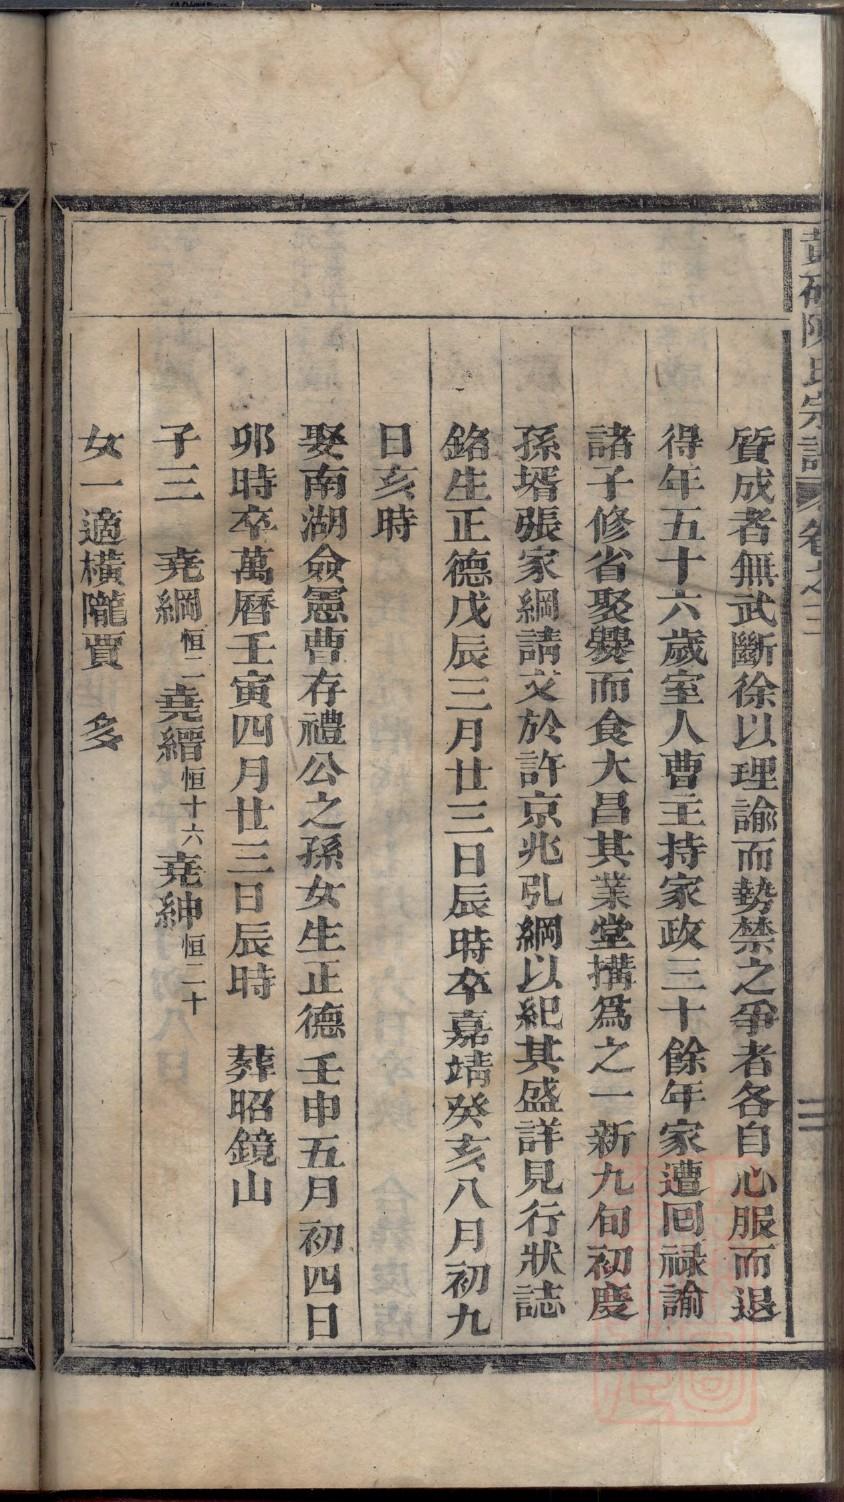 陳氏宗譜 卷之三
質成者無武斷徐以理諭而勢禁之爭者各自心服而退
得年五十六歲室人曹主持家政三十餘年家遭囘祿諭
諸子修省聚爨而食大昌其業堂搆爲之一新九旬初慶
孫壻張家綱請文於許京兆弘綱以紀其盛詳見行狀誌
銘生正德戊辰三月廿三日辰時卒嘉靖癸亥八月初九
日亥時
娶南湖僉憲曹存禮公之孫女生正德壬申五月初四日
卯時卒萬曆壬寅四月廿三日辰時 葬昭鏡山
子三 堯綱恒二 堯縉恒十六 堯紳恒二十
女一適橫隴賈 多